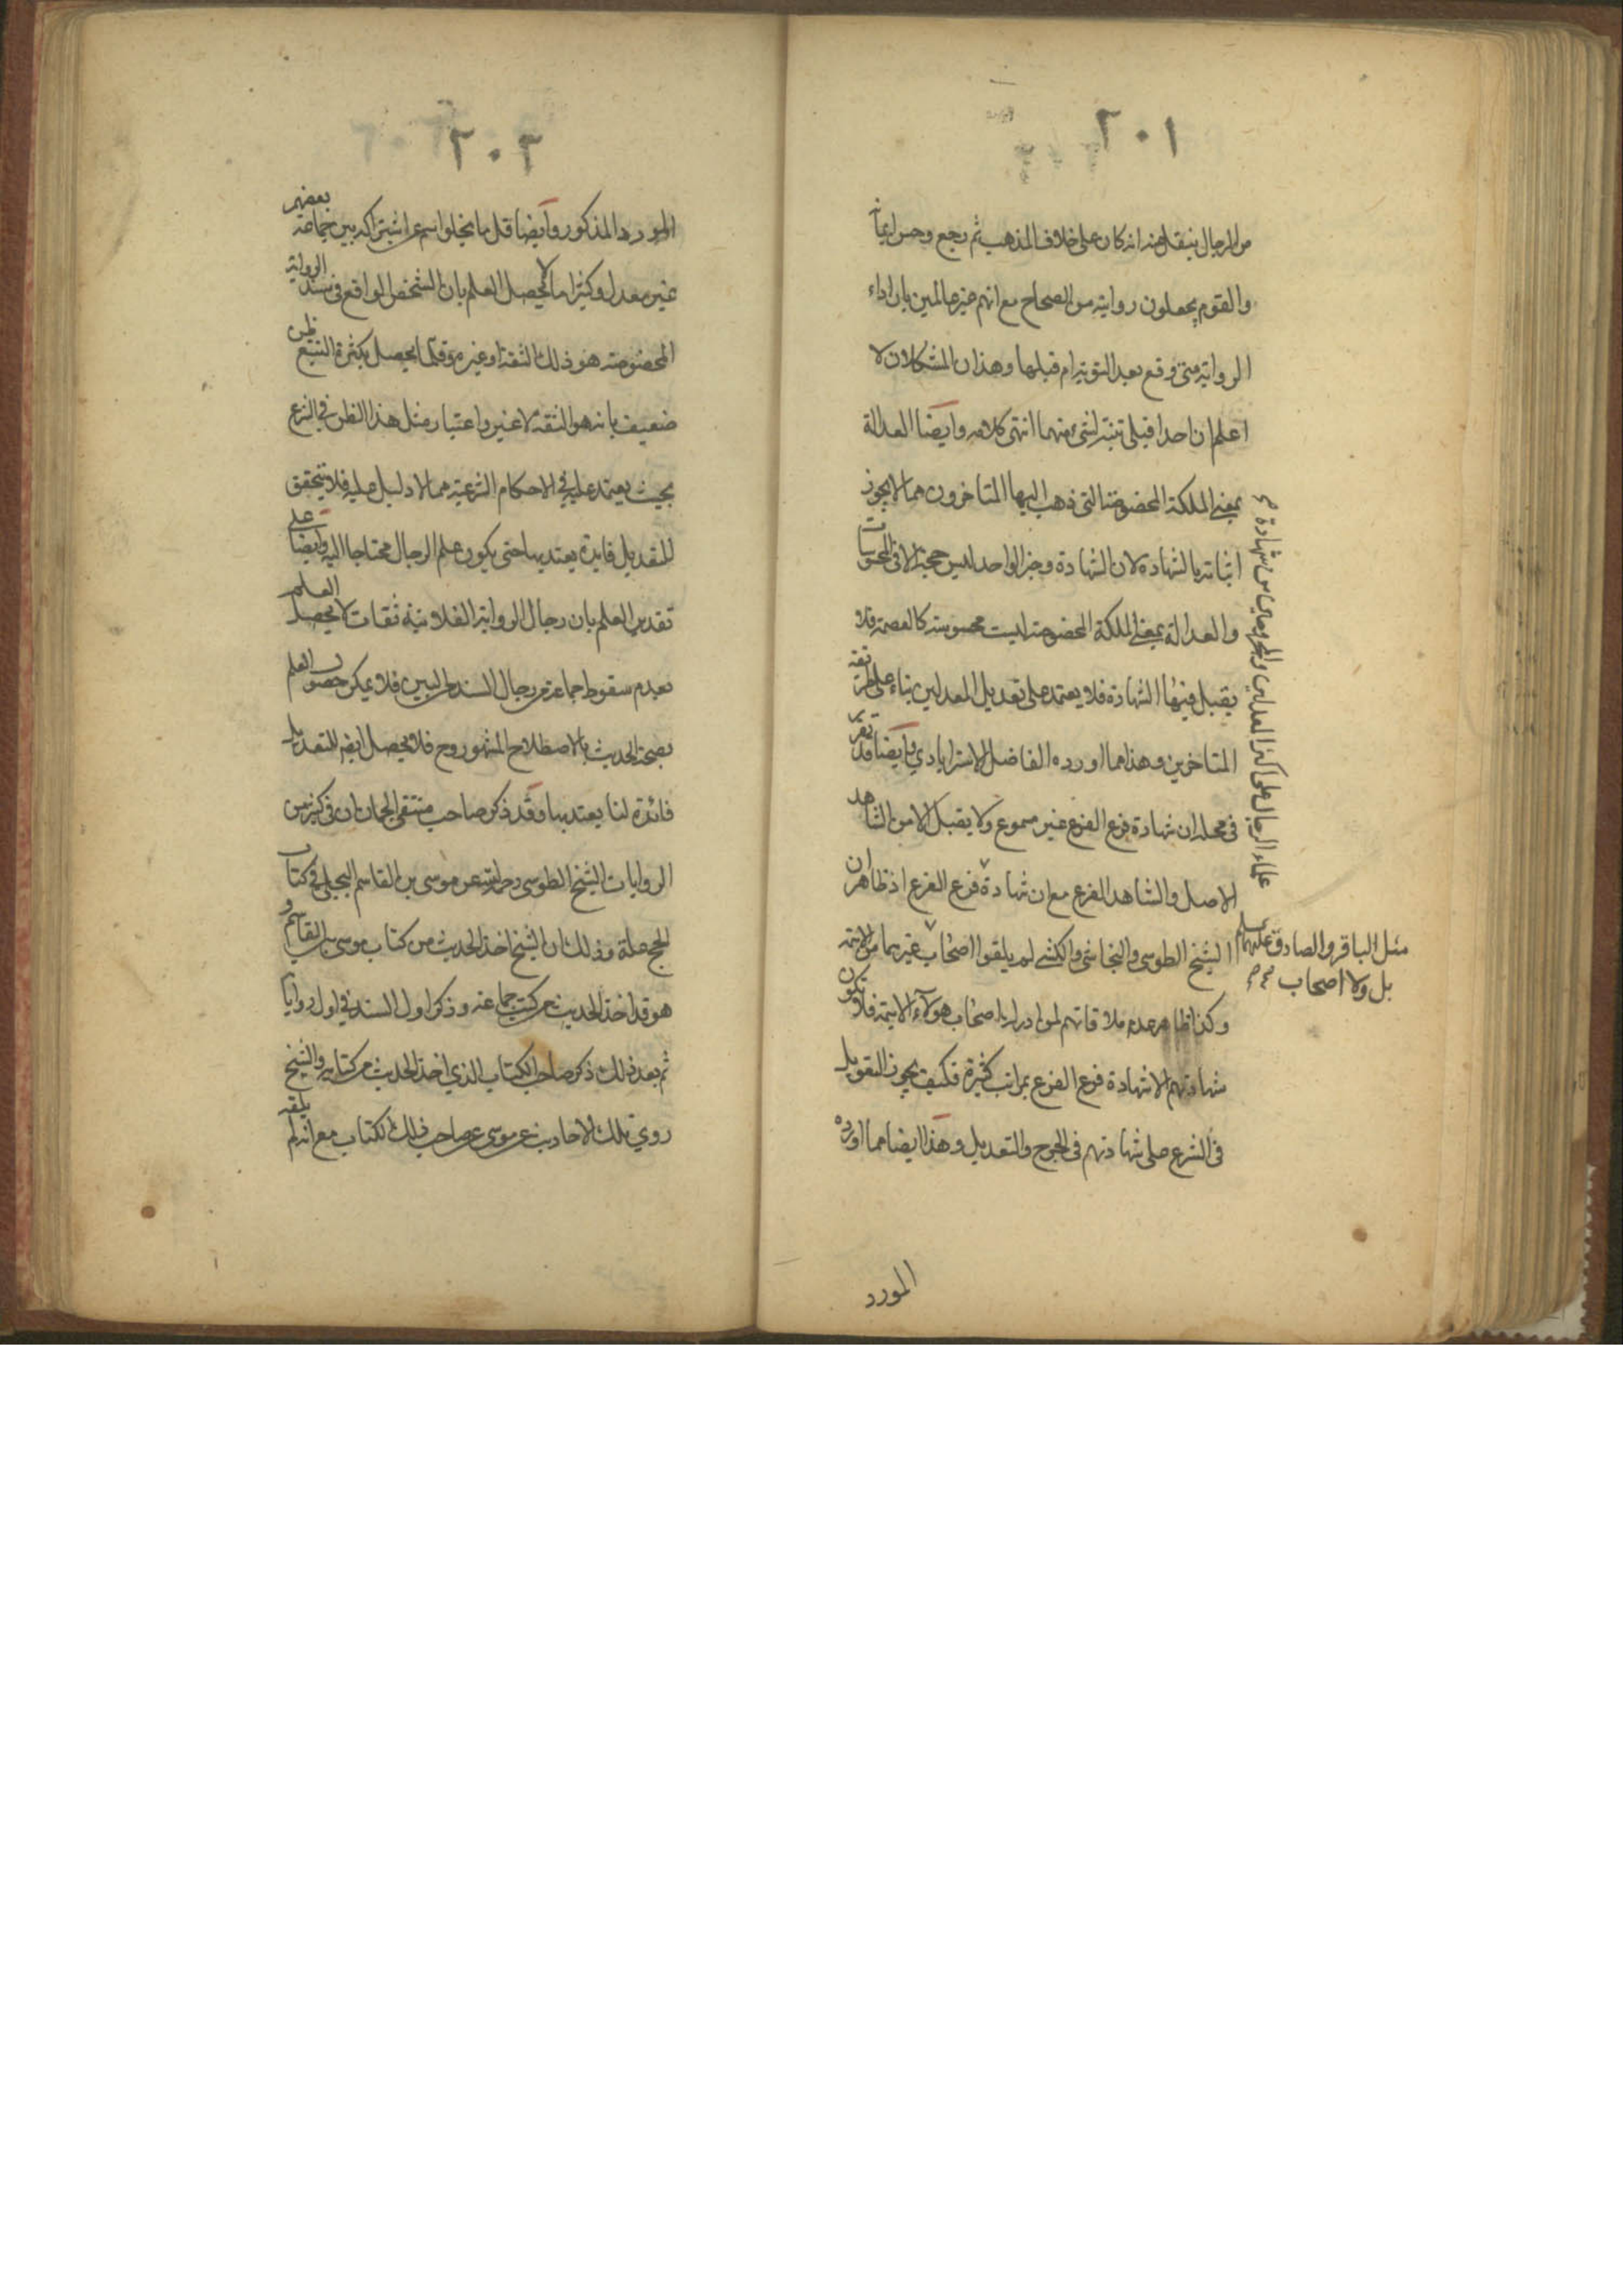 ٢٠١
من الرجال ينقل عنه انه كان على خلاف المذهب ثم رجع وحسن ايمانه
والقوم يجعلون روايته من الصحاح مع انهم غير عالمين بان اداء
الرواية متى وقع بعد التوبة ام قبلها وهذان المشكلان لا
اعلم ان احدا قبلي تنبه لشئ منهما انتهى كلامه وايضا العدالة
بمعنى الملكة المخصوصة التي ذهب اليها المتاخرون مما لا يجوز
اثباته بالشهادة لان الشهادة وخبر الواحد ليس حجة الا في المحسوسات
والعدالة بمعنى الملكة المخصوصة ليست محسوسة كالعصمة فلا
يقبل فيها الشهادة فلا يعتمد على تعديل المعدلين بناء على طريقة
المتاخرين وهذا مما اورده الفاضل الاسترابادي وايضا قد تقرر
في محله ان شهادة فرع الفرع غير مسموع ولا يقبل الا من الشاهد
الاصل والشاهد الفرع مع ان شهادة فرع الفرع اذ ظاهر ان
الشيخ الطوسي والنجاشي والكشي لم يلقوا اصحاب غيرهما من الائمة
وكذا ظاهر عدم ملاقاتهم لمن ادرك اصحاب هؤلاء الائمة فلا تكون
شهادتهم الا شهادة فرع الفرع بمراتب كثيرة فكيف يجوز التعويل
في الشرع على شهادتهم في الجرح والتعديل وهذا ايضا مما اورده
علماء الرجال على اكثر المعدلين والمجروحين من شهادة
مثل الباقر والصادق عليهما السلم
بل ولا اصحاب
المورد
٢٠٢
المورد المذكور وايضا قل ما يخلو اسم عن اشتراكه بين جماعة بعضهم
غير معدل وكثيرا ما لا يحصل العلم بان الشخص الواقع في سند الرواية
المخصوصة هو ذلك الثقة او غيره وقلما يحصل بكثرة التتبع ظن
ضعيف بانه هو الثقة لا غير واعتبار مثل هذا الظن في الشرع
بحيث يعتمد عليه في الاحكام الشرعية مما لا دليل عليه فلا يتحقق
للتعديل فايدة يعتد بها حتى يكون علم الرجال محتاجا اليه وايضا على
تقدير العلم بان رجال الرواية الفلانية ثقات لا يحصل العلم
بعدم سقوط جماعة من رجال السند من البين فلا يمكن حصول العلم
بصحة الحديث بالاصطلاح المشهور وح فلا يحصل ايضا للتعديل
فائدة لنا يعتد بها وقد ذكر صاحب منتقى الجمان ان في كثير من
الروايات الشيخ الطوسي رحمه الله عن موسى بن القاسم البجلي في كتاب
الحج علة وذلك ان الشيخ اخذ الحديث من كتاب موسى بن القاسم و
هو قد اخذ الحديث من كتب جماعة وذكر اول السند في اول رواياته
ثم بعد ذلك ذكر صاحب الكتاب الذي اخذ الحديث من كتابه والشيخ
روي تلك الاحاديث عن موسى عن صاحب ذلك الكتاب مع انه لم يلقه